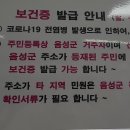 보건증 발급 안내
코로나19 전염병 발생으로 인하여,
주민등록상 음성군 거주자이며
음성군 주소가 등재된 주민에
보건증 발급 가능 합니다 ~
주소가 타 지역 민원은 음성군
확인서류가 필요 합니다 ~